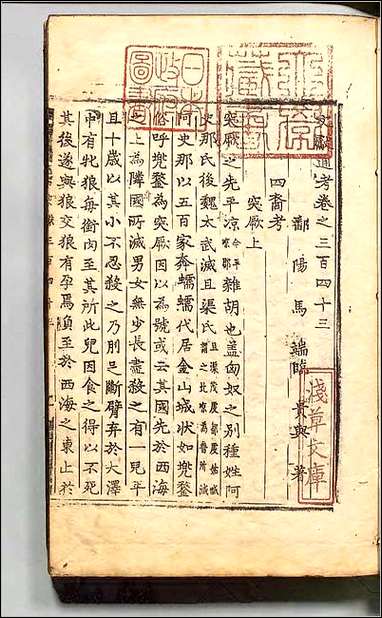 文獻通考卷之三百四十三
鄱陽馬端臨貴與著
四裔考
突厥上
突厥之先平凉今平凉郡雜胡也盖匈奴之别種姓阿
史那氏後魏太武滅且渠氏
阿史那以五百家奔蠕蠕代居金山城狀如兜鍪
俗呼兜鍪為突厥因以為號或云其國先於西海
之上為隣國所滅男女無少長盡殺之有一兒年
且十歲以其小不忍殺之乃刖足斷臂弃於大澤
中有牝狼每銜肉至其所此兒因食之得以不死
其後遂與狼交狼有孕焉負至於西海之東止於
淺草文庫
日本
政府
圖書